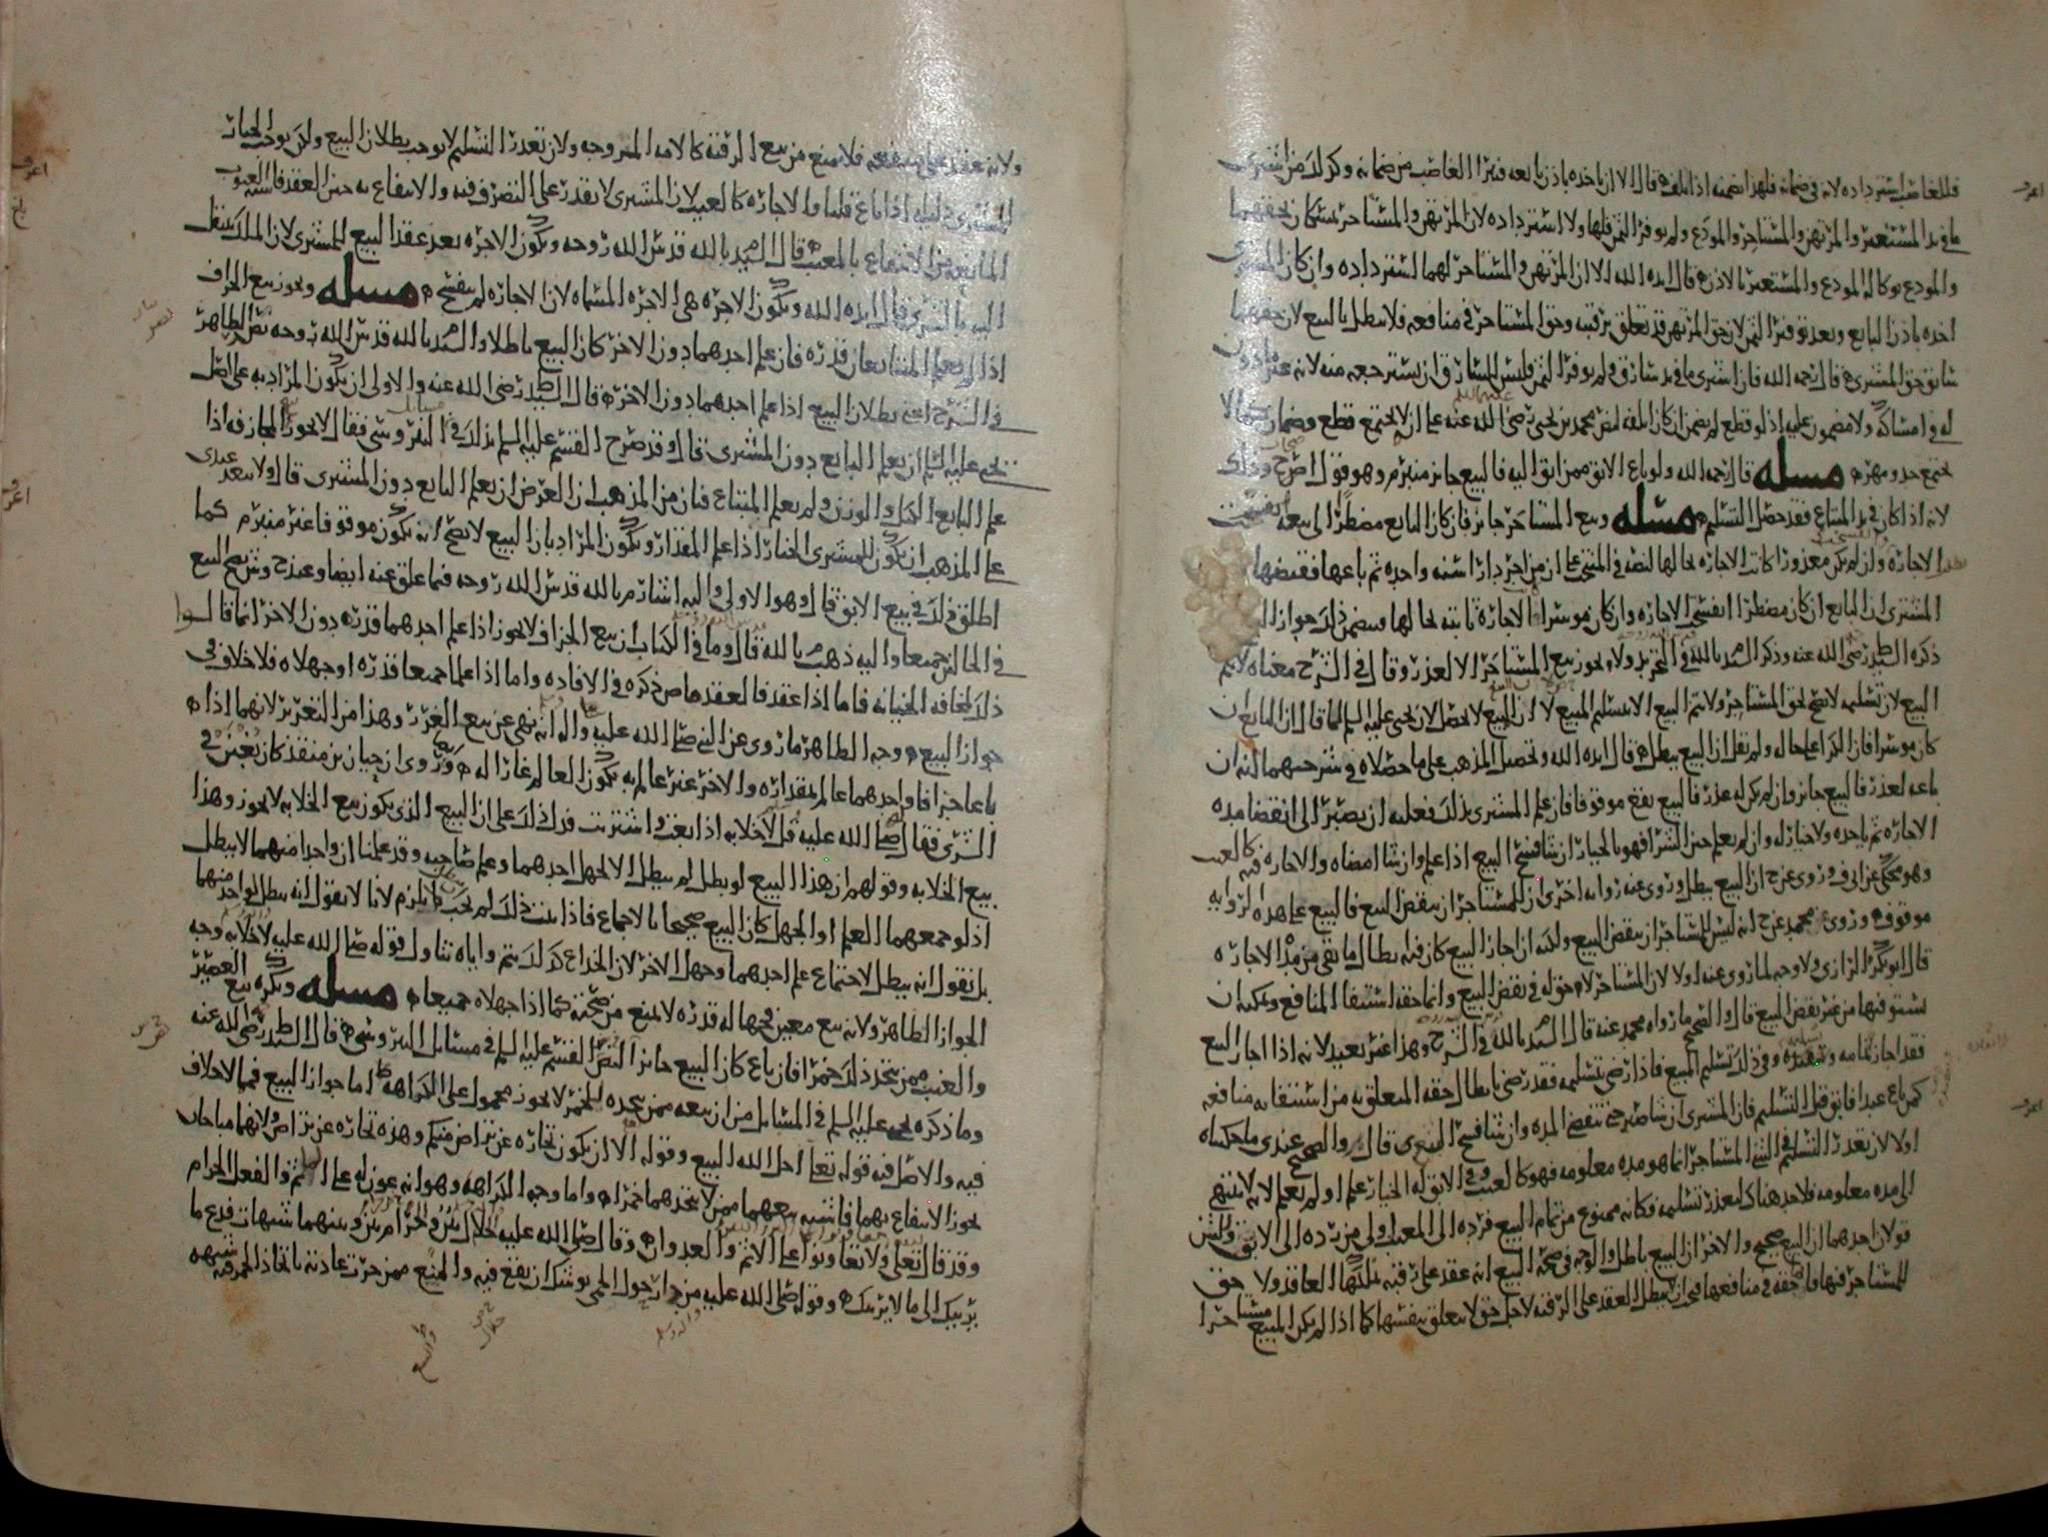 فللغاصب استرداده لانه في ضمانه فلهذا يضمنه اذا تلف قال الا ان ياخذه باذن بائعه فيبرا الغاصب من ضمانه وكذلك من اشترى
ما في يد المستعير والمرتهن والمستاجر والمودع ولم يوفر الثمن فلها ولا استرداده لان المرتهن والمستاجر يمسكان بحقهما
والمودع بوكالة المودع والمستعير بالاذن قال ايده الله الا ان المرتهن والمستاجر لهما استرداده وان كان المشتري
اخذه باذن البايع وبعد توفير الثمن لان حق المرتهن قد تعلق برقبته وحق المستاجر في منافعه فلا يبطل بالبيع لان حقهما
سابق حق المشتري قال رحمه الله فان اشترى ما في يد سارق ولم يوفر الثمن فليس للسارق ان يسترجعه منه لانه غير ماذون
له في امساكه ولا مضمون عليه اذ لو قطع لم يضمن ان كان اتلفه لنص محمد بن يحيى رضي الله عنه على ان لا يجتمع قطع وضمان كما لا
يجتمع حد ومهر مسله قال رحمه الله ولو باع الابق ممن ابق اليه فالبيع جائز منبرم وهو قول اصح وذلك
لانه اذا كان في يد المبتاع فقد حصل التسليم مسله وبيع المستاجر جائز فان كان البايع مضطرا الى بيعه انفسخت
الاجارة وان لم يكن معذورا كانت الاجارة بحالها لنصه في المنتخب على ان من اجر دارا سنة واحدة ثم باعها فقبضها
المشتري ان البايع ان كان مضطرا انفسخ الاجارة وان كان موسرا فالاجارة ثابتة بحالها فيضمن ذلك جواز
ذكره السيد ط رضي الله عنه وذكر السيد م بالله في التجريد ولا يجوز بيع المستاجر الا لعذر وقال في الشرح معناه لا يتم
البيع لان تسليمه لا يصح لحق المستاجر ولا يتم البيع الا بتسليم المبيع لا ان البيع لا يحصل لان يحيى عليه السلم انما قال ان البايع ان
كان موسرا فان الكرا على حاله ولم يقل ان البيع يبطل قال ايده الله وتحصيل المذهب على ما حصلاه في شرحيهما انه ان
باعه لعذر فالبيع جائز وان لم يكن له عذر فالبيع يقع موقوفا فان علم المشتري بذلك فعليه ان يصبر الى انقضا مدة
الاجارة ثم ياخذه ولا خيار له وان لم يعلم حين الشرا فهو بالخيار ان شا فسخ البيع اذا علم وان شا امضاه والاجارة فيه كالعيب
وهو محكي عن ابي ف وروى عن ح ان البيع يبطل وروى عنه رواية اخرى ان للمستاجر ان ينقض البيع فالبيع على هذه الرواية
موقوف وروى محمد عن ح انه ليس للمستاجر ان ينقض البيع ولكنه ان اجاز البيع كان فيه ابطال ما بقي من مدة الاجارة
قال ابو بكر الرازي ولا وجه لما روى عنه اولا لان المستاجر لا حق له في نقض البيع وانما حقه استيفا المنافع ويمكنه ان
يستوفيها من غير نقض البيع قال والصحيح ما رواه محمد عنه قال السيد م بالله في الشرح وهذا غير بعيد لانه اذا اجاز البيع
فقد اجاز تمامه وتنفيذه وفي ذلك تسليم المبيع فاذا رضي بتسليمه فقد رضي بابطال حقه المتعلق به من استيفا منافعه
كمن باع عبدا فابق قبل التسليم فان المشتري ان شا صبر حتى تنقضي المدة وان شا فسخ البيع قال والصحيح عندي ما حكيناه
اولا لان تعذر التسليم في الشي المستاجر انما هو مدة معلومة فهو كالعيب وفي الابق له الخيار علم او لم يعلم لانه لا ينتهي
الى مدة معلومة فلا حد هناك لتعذر تسليمه فكانه ممنوع من تمام البيع فرده الى المعيب اولى من رده الى الابق
قولان احدهما ان البيع صحيح والاخر ان البيع باطل والوجه في صحة البيع انه عقد على رقبة يملكها العاقد ولا حق
للمستاجر فيها وانما حقه في منافعها فيجب ان لا يبطل العقد على الرقبة لاجل حق لا يتعلق بنفسها كما اذا لم يكن المبيع مستاجرا
ولانه عقد على منفعة فلا يمنع من بيع الرقبة كالامة المزوجة ولان تعذر التسليم لا يوجب بطلان البيع ولكن يوجب الخيار
للمشتري دليله اذا باع قلنا والاجارة كالعيب لان المشتري لا يقدر على التصرف فيه والانتفاع به حين العقد فاشبه العيوب
المانعة من الانتفاع بالمعيب قال السيد م بالله قدس الله روحه وتكون الاجرة بعد عقد البيع للمشتري لان الملك ينتقل
اليه بالشرى قال ايده الله وتكون الاجرة هي الاجرة المسماة لان الاجارة لم تنفسخ مسله ويجوز بيع الجزاف
اذا لم يعلم المتبايعان قدره فان علم احدهما دون الاخر كان البيع باطلا والسيد م بالله قدس الله روحه نص الظاهر
في الشرح اعني بطلان البيع اذا علم احدهما دون الاخر قال السيد ط رضي الله عنه والاولى ان يكون المراد به على اصل
يحيى عليه السلم ان يعلم البايع دون المشتري قال وقد صرح القسم عليه السلم بذلك في مسايل النيروسي فقال لا يجوز المجازفة اذا
علم البايع الكيل والوزن ولم يعلم المبتاع فبان من المذهب ان الغرض ان يعلم البايع دون المشتري قال ولا يبعد عندي
على المذهب ان يكون للمشتري الخيار اذا علم المقدار ويكون المراد بان البيع لا يصح انه يكون موقوفا غير منبرم كما
اطلق ذلك في بيع الابق قال وهو الاولى واليه اشار م بالله قدس الله روحه فيما علق عنه ايضا وعند ح وش يصح البيع
في الحالين جميعا واليه ذهب م بالله قال وما في الكتاب ان بيع الجزاف لا يجوز اذا علم احدهما قدره دون الاخر انما قالوا
ذلك لمخافة الخيانة فاما اذا عقد فالعقد ماض ذكره في الافادة واما اذا علما جميعا قدره او جهلاه فلا خلاف في
جواز البيع وجه الظاهر ما روى عن النبي صلى الله عليه واله انه نهى عن بيع الغرر وهذا من التغرير لانهما اذا
باعا جزافا واحدهما عالم بمقداره والاخر غير عالم به يكون العالم غارا له وروى ان حبان بن منقذ كان يغبن في
الشرى فقال صلى الله عليه قل لا خلابة اذا بعت واشتريت فدل ذلك على ان البيع الذي يكون بيع الخلابة لا يجوز وهذا
بيع الخلابة وقولهم ان هذا البيع لو بطل لم يبطل الا لجهل احدهما وعلم صاحبه وقد علمنا ان واحدا منهما لا يبطل
اذ لو جمعهما العلم او الجهل كان البيع صحيحا بالاجماع فاذا ثبت ذلك لم يجب ما يلزم لانا لا نقول انه يبطل لواحد منهما
بل نقول انه يبطل لاجتماع علم احدهما وجهل الاخر لان الخداع كذلك يتم واياه تناول قوله صلى الله عليه لا خلابة وجه
الجواز الظاهر ولانه بيع معين فجهالة قدره لا تمنع من صحته كما اذا جهلاه جميعا مسله ويكره بيع العصير
والعنب ممن يتخذ ذلك خمرا فان باع كان البيع جائزا لنص القسم عليه السلم في مسايل النيروسي قال السيد ط رضي الله عنه
وما ذكره يحيى عليه السلم في المسايل من ان بيعه ممن يتخذه للخمر لا يجوز محمول على الكراهة اما جواز البيع فمما لا خلاف
فيه والاصل فيه قوله تعالى احل الله البيع وقوله الا ان تكون تجارة عن تراض منكم وهذه تجارة عن تراض ولانهما مباحان
يجوز الانتفاع بهما فاشبه بيعهما ممن لا يتخذهما خمرا واما وجه الكراهة وهو انه عون له على الاثم والفعل الحرام
وقد قال تعالى ولا تعاونوا على الاثم والعدوان وقال صلى الله عليه الحلال بين والحرام بين وبينهما شبهات فدع ما
يريبك الى ما لا يريبك وقوله صلى الله عليه من حام حول الحمى يوشك ان يقع فيه والبيع ممن جرت عادته باتخاذ الخمر فيه شبهة